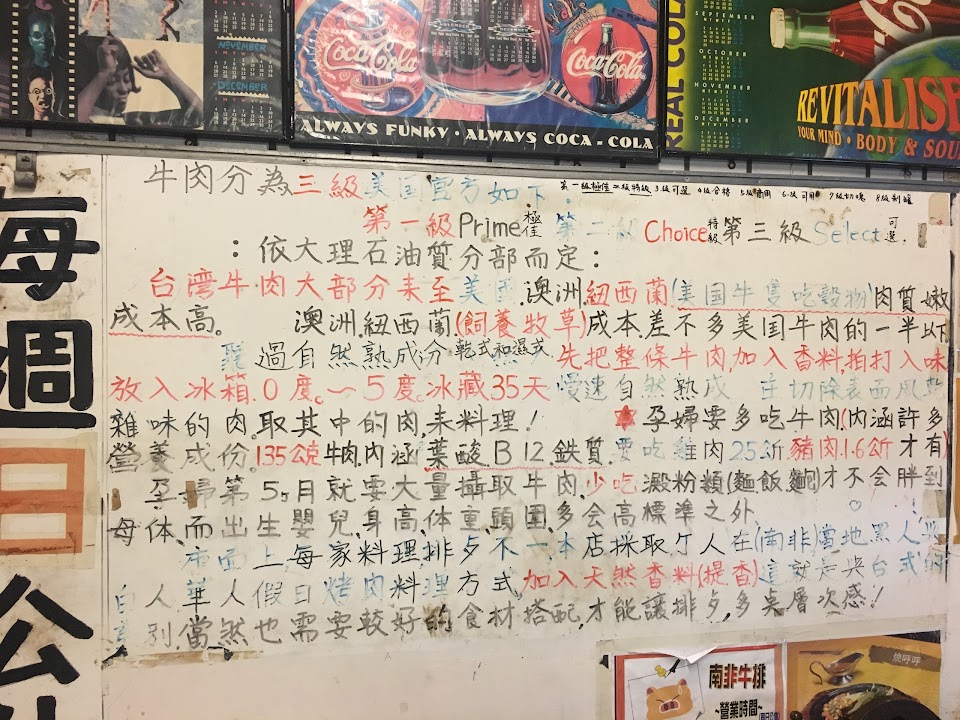 NOVEMBER
DECEMBER
Coca-Cola
Coca-Cola
ALWAYS FUNKY · ALWAYS COCA-COLA
REAL CO
SEPTEMBER
OCTOBER
NOVEMBER
DECEMBER
REVITALISE
YOUR MIND · BODY & SOU
每週日公
牛肉分為三級美国官方如下.
第一級極佳 2級特級 3級可選 4級合格 5級商用 6級可用 7級切塊 8級制罐
第一級Prime極佳 第二級 Choice特級 第三級Select可選.
:依大理石油質分部而定:
台灣牛肉大部分来至美国.澳洲.紐西蘭(美国牛隻吃穀物)肉質嫩
成本高。 澳洲.紐西蘭(飼養牧草)成本差不多美国牛肉的一半以下
過自然熟成分乾式和濕式.先把整條牛肉加入香料拍打入味
放入冰箱.0度。~5度。冰藏35天慢速自然熟成 切除表面風乾
雜味的肉.取其中的肉来料理! 孕婦要多吃牛肉(內涵許多
營養成份.135公克牛肉.內涵葉酸B12.鉄質.要吃雞肉25公斤豬肉1.6公斤才有)
孕婦第5.月就要大量攝取牛肉.少吃澱粉類(麵飯麵包)才不会胖到
母体.而出生嬰兒.身高.体重.頭圍.多会高標準之外.
市面上每家料理排歺不一本店採取丁人在(南非)當地黑人
白人華人假日烤肉料理方式.加入天然香料(提香)這就是 台式的
別.當然也需要較好的食材搭配.才能讓排歺.多 層次感!
南非牛排
~營業時間~
燒呼呼